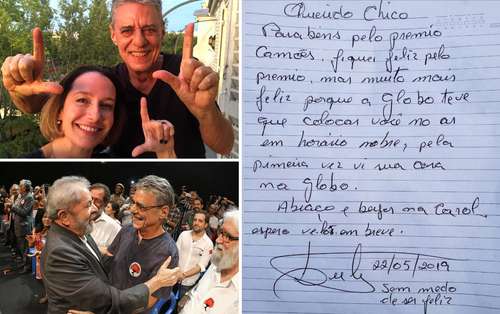 Querido Chico
Parabens pelo premio
Camões, fiquei feliz pelo
premio, mas muito mais
feliz porque a Globo teve
que colocar você no ar
em horario nobre, pela
primeira vez vi sua cara
na globo.
Abraço e beijos na Carol,
espero velos em breve.
22/05/2019
Sem medo
de ser feliz